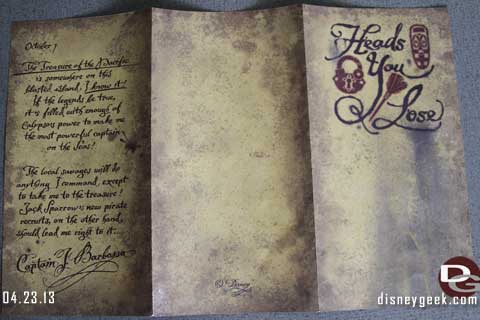 October 7
The Treasure of the Pacific
is somewhere on this
blasted island, I know it!
If the legends be true,
it is filled with enough of
Calypsos power to make me
the most powerful captain
on the Seas!
The local savages will do
anything I command, except
to take me to the treasure!
Jack Sparrow's new pirate
recruits, on the other hand,
should lead me right to it...
Captain J. Barbossa
© Disney
Heads
You
Lose
04.23.13
DG
disneygeek.com